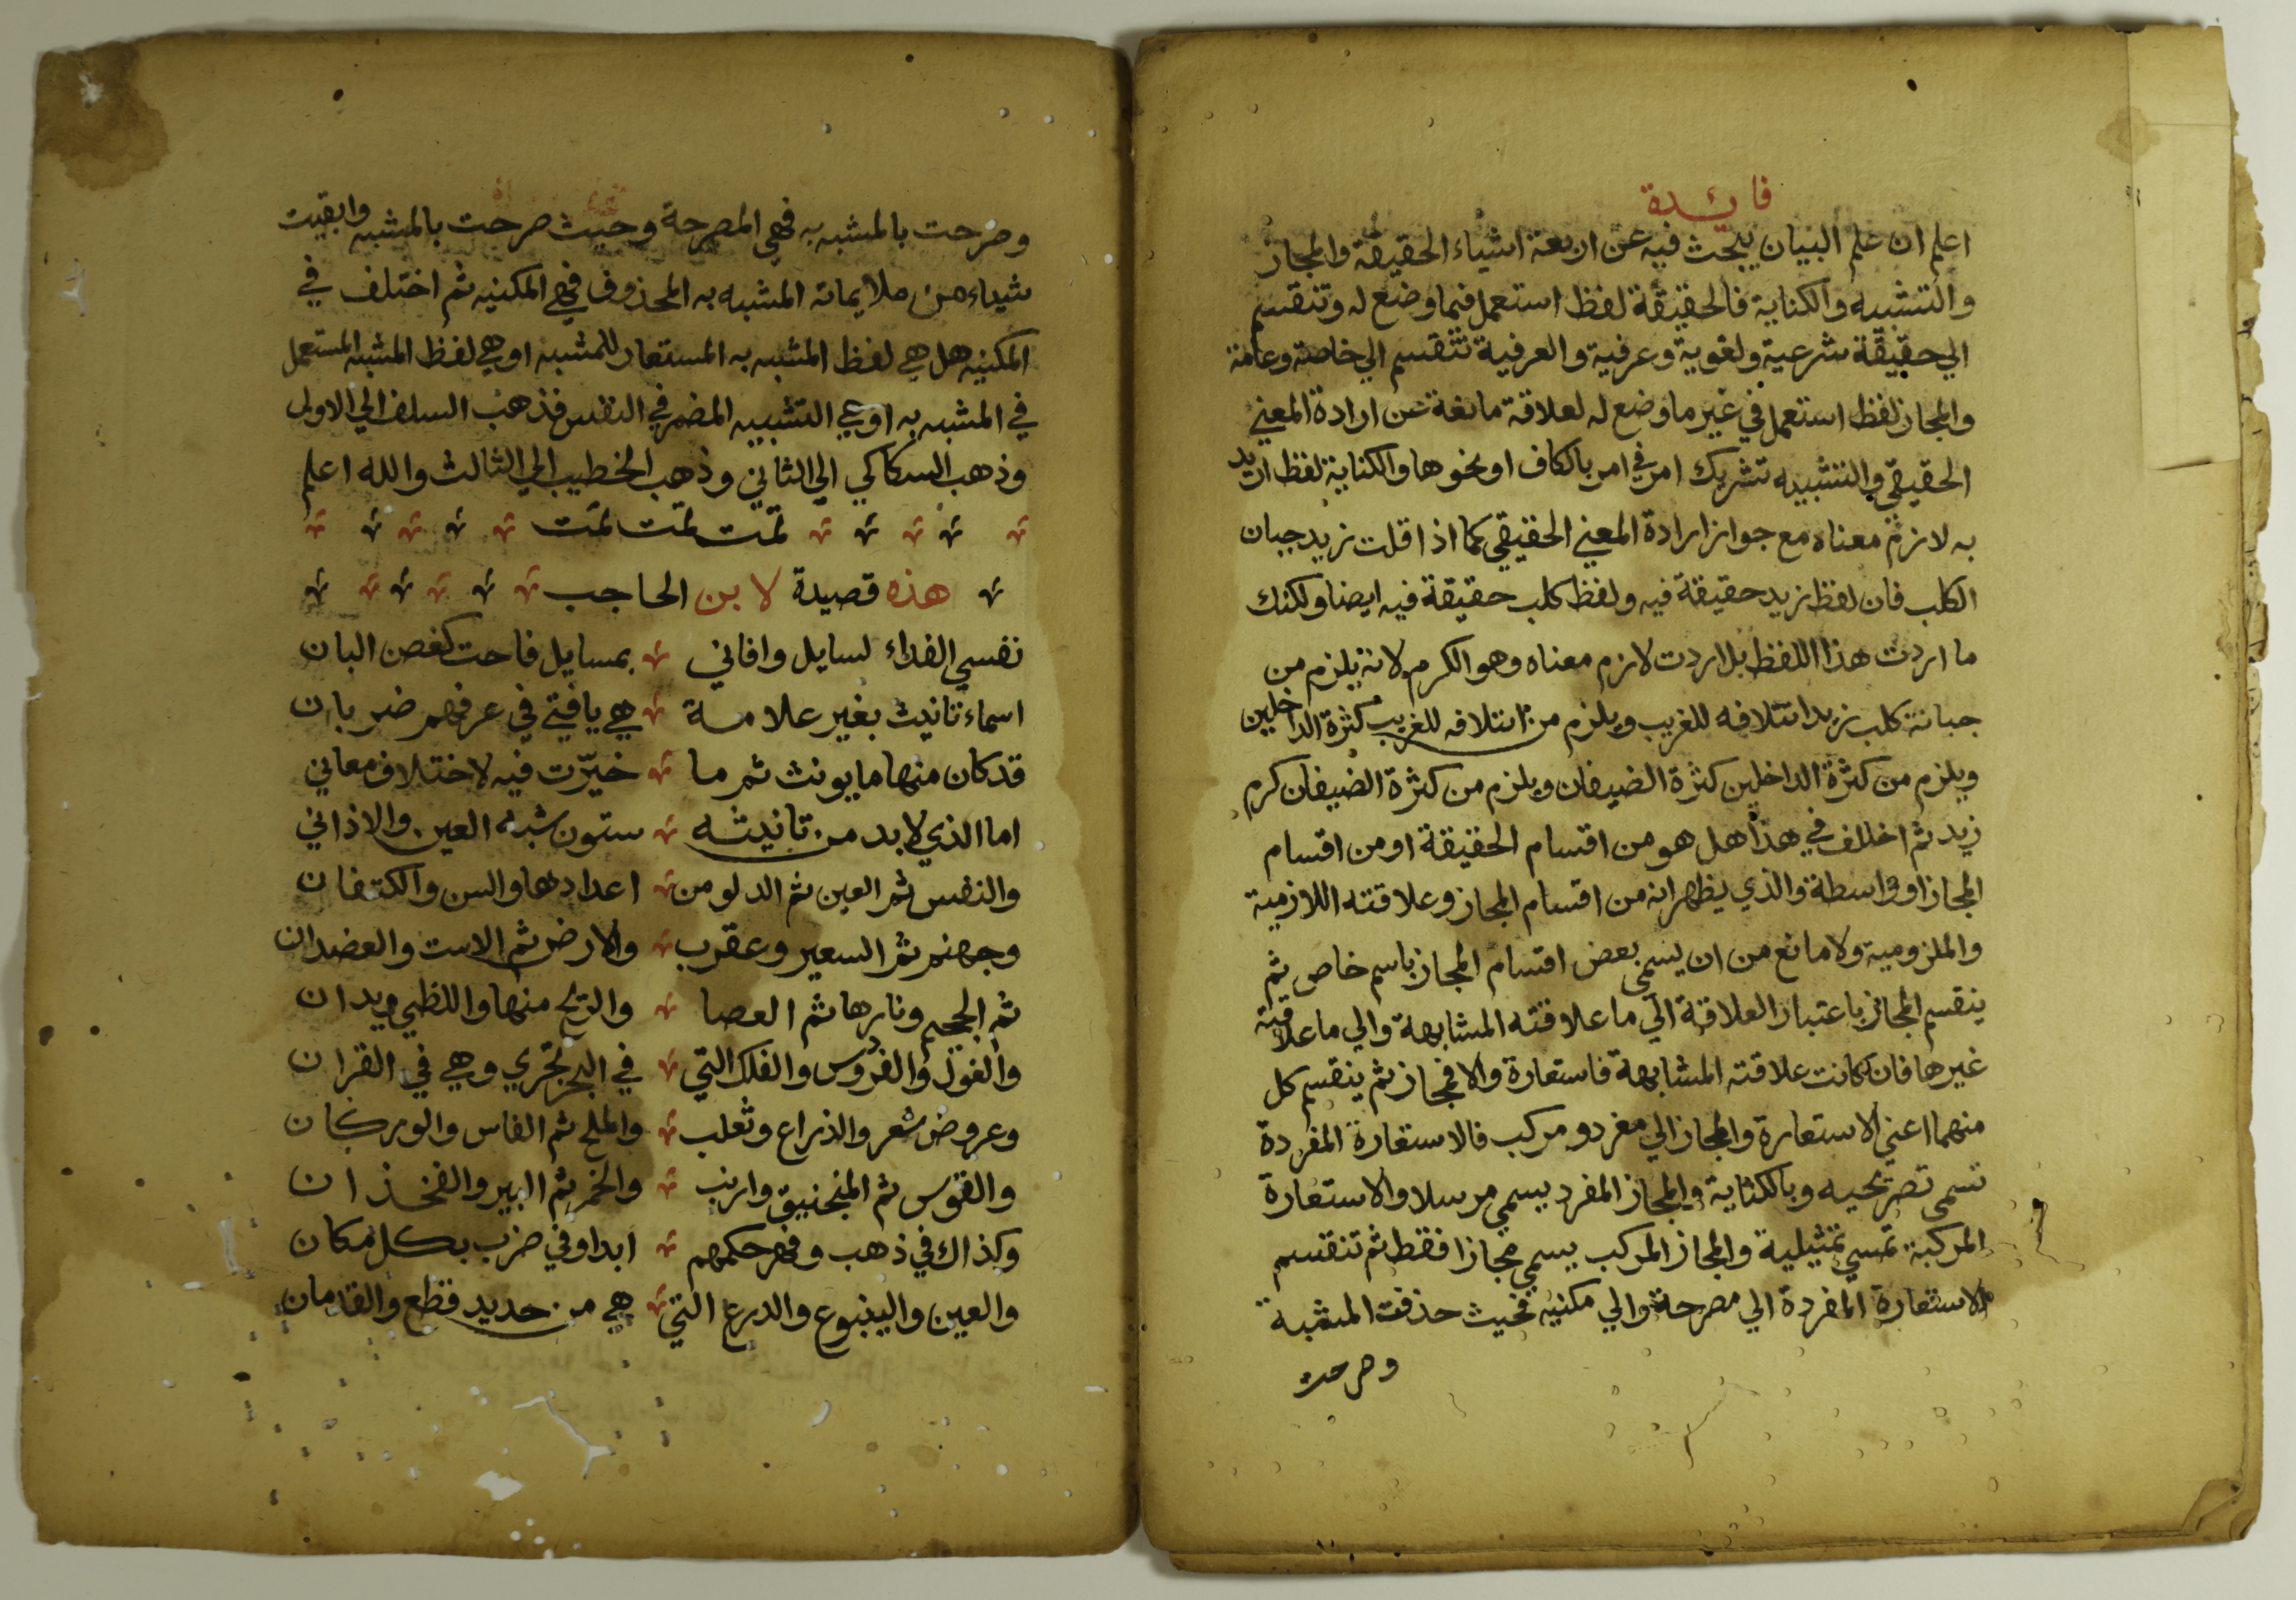 فائدة
اعلم ان علم البيان يبحث فيه عن اربعة اشياء الحقيقة والمجاز
والتشبيه والكناية فالحقيقة لفظ استعمل فيما وضع له وتنقسم
الي حقيقة شرعية ولغوية وعرفية والعرفية تنقسم الي خاصة وعامة
والمجاز لفظ استعمل في غير ما وضع له لعلاقة مانعة عن ارادة المعني
الحقيقي والتشبيه تشريك امر في امر بالكاف او نحوها والكناية لفظ اريد
به لازم معناه مع جواز ارادة المعني الحقيقي كما اذا قلت زيد جبان
الكلب فان لفظ زيد حقيقة فيه ولفظ كلب حقيقة فيه ايضا ولكنك
ما اردت هذا اللفظ بل اردت لازم معناه وهو الكرم لانه يلزم من
جبانة كلب زيد ائتلافه للغريب ويلزم من ائتلافه للغريب كثرة الداخلين
ويلزم من كثرة الداخلين كثرة الضيفان ويلزم من كثرة الضيفان كرم
زيد ثم اختلف في هذا هل هو من اقسام الحقيقة او من اقسام
المجاز او واسطة والذي يظهر انه من اقسام المجاز وعلاقته اللازمية
والملزومية ولا مانع من ان يسمي بعض اقسام المجاز باسم خاص ثم
ينقسم المجاز باعتبار العلاقة الي ما علاقته المشابهة والي ما علاقته
غيرها فان كانت علاقته المشابهة فاستعارة والا فمجاز ثم ينقسم كل
منهما اعني الاستعارة والمجاز الي مفرد ومركب فالاستعارة المفردة
تسمى تصريحيه وبالكناية والمجاز المفرد يسمي مرسلا والاستعارة
المركبة تمسي تمثيلية والمجاز المركب يسمي مجازا فقط ثم تنقسم
الاستعارة المفردة الي مصرحة والي مكنيه فحيث حذفت المشبة
وصرحت
وصرحت بالمشبه به فهي المصرحة وحيث صرحت بالمشبه وابقيت
شيء من ملايماته المشبه به المحذوف فهي المكنيه ثم اختلف في
المكنيه هل هي لفظ المشبه به المستعار للمشبه او هي لفظ المشبه المستعمل
في المشبه به او هي التشبيه المضمر في النفس فذهب السلف الي الاول
وذهب السكاكي الي الثاني وذهب الخطيب الي الثالث والله اعلم
تمت تمت تمت
هذه قصيدة لابن الحاجب
نفسي الفداء لسايل وافاني بمسايل فاحت كغصن البان
اسماء تانيث بغير علامة هي يا فتي في عرفهم ضربان
قد كان منها ما يونث ثم ما خيّرت فيه لاختلاف معاني
اما الذي لا بد من تانيثه ستون شبه العين والاذاني
والنفس ثم العين ثم الدلو من اعدادها والسن والكتفان
وجهنم ثم السعير وعقرب والارض ثم الاست والعضدان
ثم الجحيم ونارها ثم العصا والريح منها واللظي ويدان
والغول والفردوس والفلك التي في البحر تجري وهي في القران
وعروض شعر والذراع وثعلب والملح ثم الفاس والوركان
والقوس ثم المنجنيق وارنب والخمر ثم البير والفخذان
وكذاك في ذهب وفهر حكمهم ابدا وفي ضرب بكل مكان
والعين والينبوع والدرع التي هي من حديد قطع والقدمان